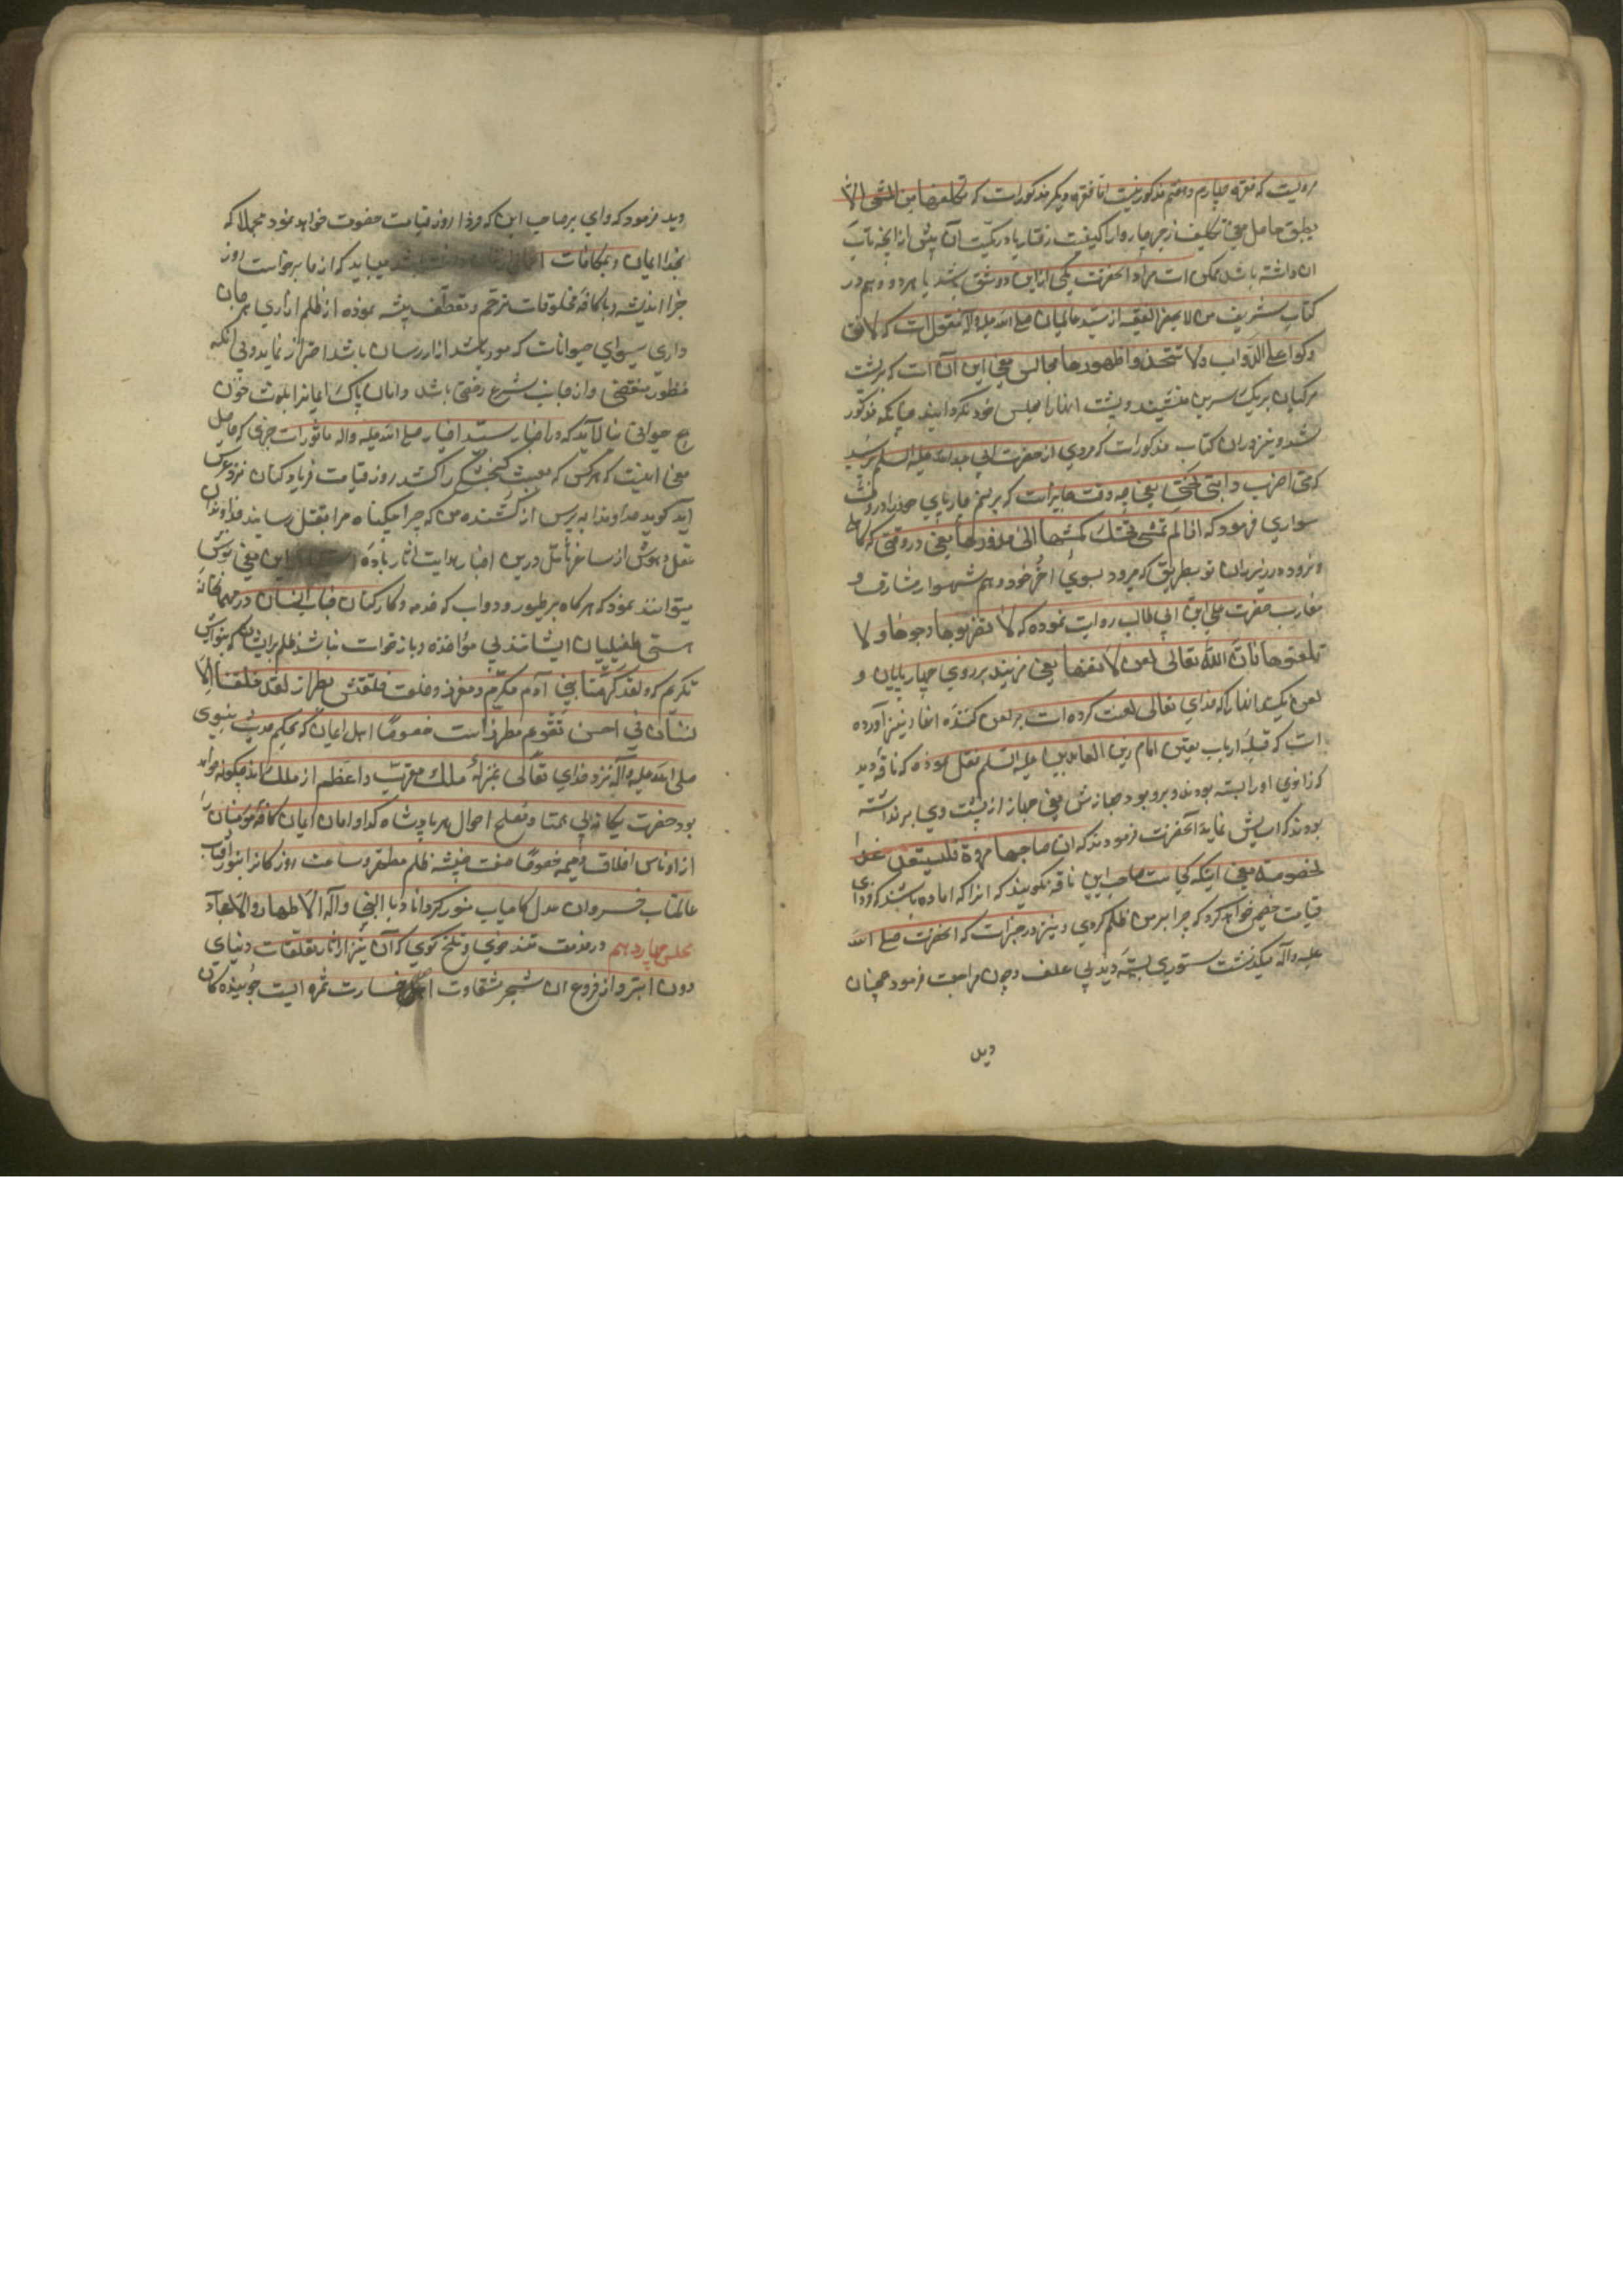 روایت که فقره چهارم و هفتم مذکور نیست اما فقره دیگر مذکور است که تکلفها من المشی الا
یطیق حاصل معنی تکلیف زجر چاروا را کیفیت رفتار یا در کمیت آن پیش از آنچه تاب
ان داشته باشد ممکن است مراد آنحضرت یکی ازین دو شق باشد یا هر دو و هم در
کتاب شریف من لا یحضر الفقیه از سید عالمیان صلی الله علیه و آله منقول است که لا تتو
رکوا علی الدواب ولا تتخذوا ظهورها مجالس معنی این آن است که بر پشت
مرکبان بر یک سرین منشینید و پشت آنها را مجلس خود نگردانید چنانکه مذکور
شد و نیز در ان کتاب مذکور است که مردی از حضرت ابی عبدالله علیه السلم پرسید
که متی اضرب دابتی تحتی یعنی چه وقت جایز است که بزنم چارپای خود را در وقت
سواری فرمود که اذا لم تمش تحتک کمشیها الی مذودها یعنی در وقتی که کاهلی
نرود در زیر ران تو بطریق که میرود بسوی آخر خود و هم شهسوار مشارق و
مغارب حضرت علی ابن ابی طالب روایت نموده که لا تضربوها وجوهها ولا
تلعنوها فان الله تعالی لعن لاعنها یعنی مزنید بر روی چهارپایان و
لعن مکنید انها را که خدای تعالی لعنت کرده است بر لعن کننده انها و نیز آورده
است که قبله ارباب یقین امام زین العابدین علیه السلم نقل نموده که ناقه دید
که زانوی او را بسته بودند و برو بود جهازش یعنی جهاز از پشت وی برنداشته
بودند که اسایش نماید آنحضرت فرمودند که ان صاحبها مروة فلیستعد غدا
لخصومة یعنی اینکه کجاست صاحب این ناقه بگویید که انرا که اماده باشد که فردای
قیامت خصم خواهد کرد که چرا بر من ظلم کردی و نیز در خبر است که آنحضرت صلی الله
علیه وآله میگذشت ستوری بسته دید بی علف و چون مراجعت فرمود همچنان
دید
دید فرمود که وای بر صاحب این که فردا روز قیامت خصومت خواهد نمود مجملا که
بخدا ایمان و بمکافات میباید که از ما برخواست روز
جزا اندیشه و با کافه مخلوقات ترحم و تعطف پیشه نموده از ظلم ازاری بر جان
داری سوای حیوانات که موذی باشد ازار رسان باشد احتراز نماید و بی انکه
منظور مقتضی و از جانب شرع رخصتی باشد دامان پاک ایمانرا بلوث خون
هیچ حیوانی نیالاید که در اخبار سید اخیار صلی الله علیه واله ماثور است خبری که حاصل
معنی اینست که هر کس که بعبث گنجشکی را کشد روز قیامت فریاد کنان نزد عرش
آید گوید خداوندا بپرس از کشنده من که چرا بیگناه مرا بقتل رسانید خداوندان
عقل و هوش از ساغر تأمل درین اخبار هدایت اثار باده این معنی نوش
میتوانند نمود که هرگاه بر طیور و دواب که خدمه و کارکنان جناب انسان در مهمانخانه
هستی طفیلیان ایشانند بی مؤاخذه و بازخواست نباشد ظلم بر ایشان که بنوازش
تکریم که ولقد کرمنا بنی آدم مکرم و معزز و خلعت خلقتش بطراز لقد خلقنا الا
نسان فی احسن تقویم مطرز است خصوصا اهل ایمان که بحکم حدیث نبوی
صلی الله علیه وآله نزد خدای تعالی بمنزله ملک مقرب و اعظم از ملک اند چگونه خواهد
بود حضرت یگانه بی همتا و مصلح احوال هر پادشاه و گدا دامان ایمان کافه مومنان را
از اوناس اخلاق ذمیمه خصوصا صفت خبیثه ظلم مطهر و ساحت روزگار را بنور آفتاب
عالمتاب خسروان عدل کامیاب منور گرداناد بالنبی وآله الاطهار والامجاد
مجلس چهاردهم در مذمت تند خویی و تلخ گویی که آن نیز از اثار تعلقات دنیای
دون ابتر و از فروع ان شجر شقاوت خسارت ثمره ایست جوینده کان